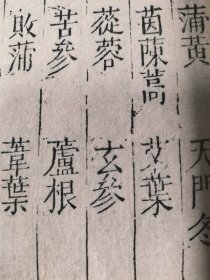 蒲黃 天門冬
茵陳蒿 艾葉
蓯蓉 玄參
苦參 蘆根
敗蒲 葦葉